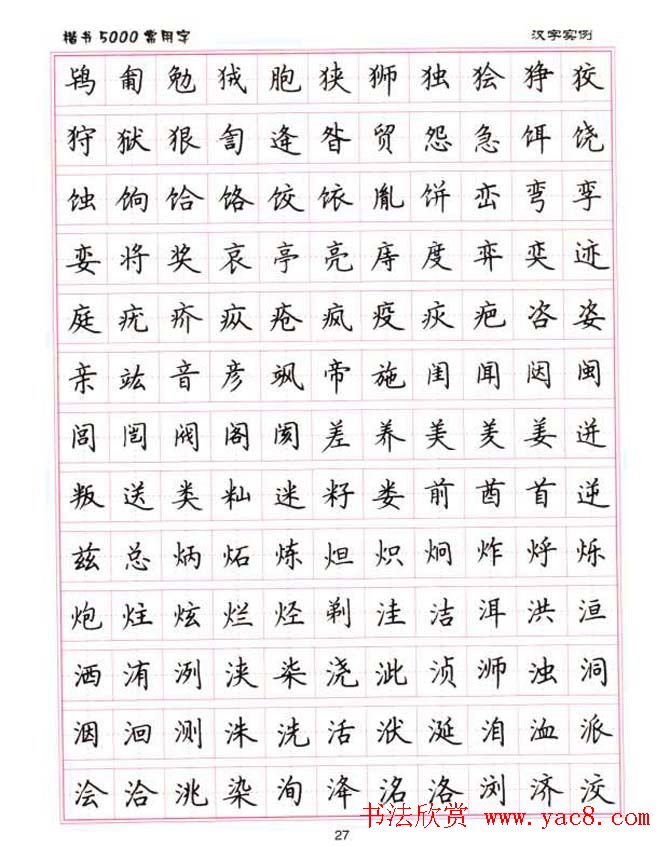 楷书5000常用字 汉字实例
鸨匍勉狨胞狭狮独狯狰狡
狩狱狠訇逄昝贸怨急饵饶
蚀饷饸饹饺饻胤饼峦弯孪
娈将奖哀亭亮庤度弈奕迹
庭疣疥疭疮疯疫疢疤咨姿
亲竑音彦飒帝施闺闻闼闽
闾闿阀阁阂差养美羑姜迸
叛送类籼迷籽娄前酋首逆
兹总炳炻炼炟炽炯炸烀烁
炮炷炫烂烃剃洼洁洱洪洹
洒洧洌浃柒浇泚浈浉浊洞
洇洄测洙洗活洑涎洎洫派
浍洽洮染洵洚洺洛浏济洨
书法欣赏 www.yac8.com
27